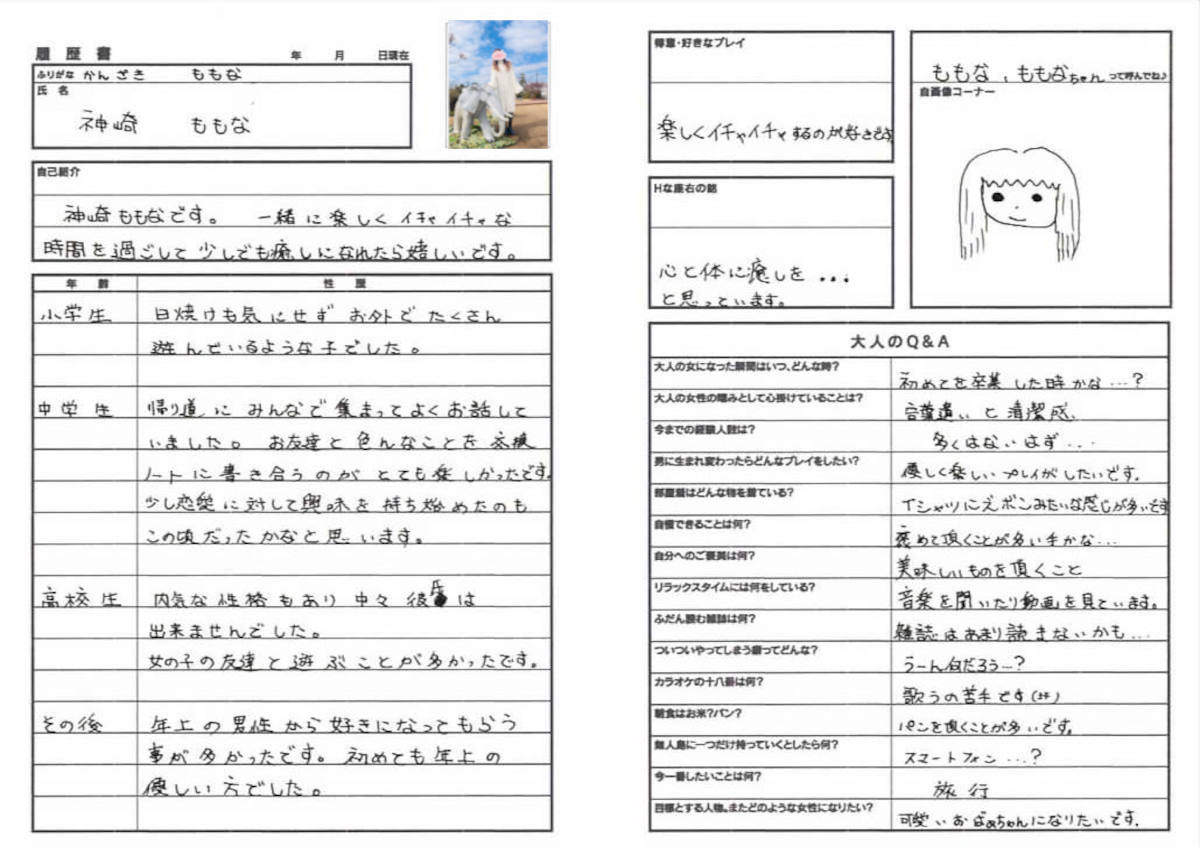 履歴書 年 月 日現在
ふりがな かんざき ももな
氏名
神崎 ももな
自己紹介
神崎ももなです。 一緒に楽しくイチャイチャな
時間を過ごして少しでも癒しになれたら嬉しいです。
年齢 性歴
小学生 日焼けも気にせずお外でたくさん
遊んでいるような子でした。
中学生 帰り道にみんなで集まってよくお話して
いました。 お友達と色んなことを交換
ノートに書き合うのがとても楽しかったです。
少し恋愛に対して興味を持ち始めたのも
この頃だったかなと思います。
高校生 内気な性格もあり中々彼氏は
出来ませんでした。
女の子の友達と遊ぶことが多かったです。
その後 年上の男性から好きになってもらう
事が多かったです。 初めても年上の
優しい方でした。
得意・好きなプレイ
楽しくイチャイチャするのが好きです
Hな座右の銘
心と体に癒しを...
と思っています。
ももな、ももなちゃんって呼んでね♪
自画像コーナー
大人のQ&A
大人の女になった瞬間はいつ、どんな時? 初めてを卒業した時かな...?
大人の女性の嗜みとして心掛けていることは? 言葉遣いと清潔感
今までの経験人数は? 多くはないはず...
男に生まれ変わったらどんなプレイをしたい? 優しく楽しいプレイがしたいです。
部屋着はどんな物を着ている? Tシャツに短ズボンみたいな感じが多いです
自慢できることは何? 褒めて頂くことが多い手かな...
自分へのご褒美は何? 美味しいものを頂くこと
リラックスタイムには何をしている? 音楽を聞いたり動画を見ています。
ふだん読む雑誌は何? 雑誌はあまり読まないかも...
ついついやってしまう癖ってどんな? うーん何だろう...?
カラオケの十八番は何? 歌うの苦手です
朝食はお米?パン? パンを頂くことが多いです。
無人島に一つだけ持っていくとしたら何? スマートフォン...?
今一番したいことは何? 旅行
目標とする人物。またどのような女性になりたい? 可愛いおばあちゃんになりたいです。